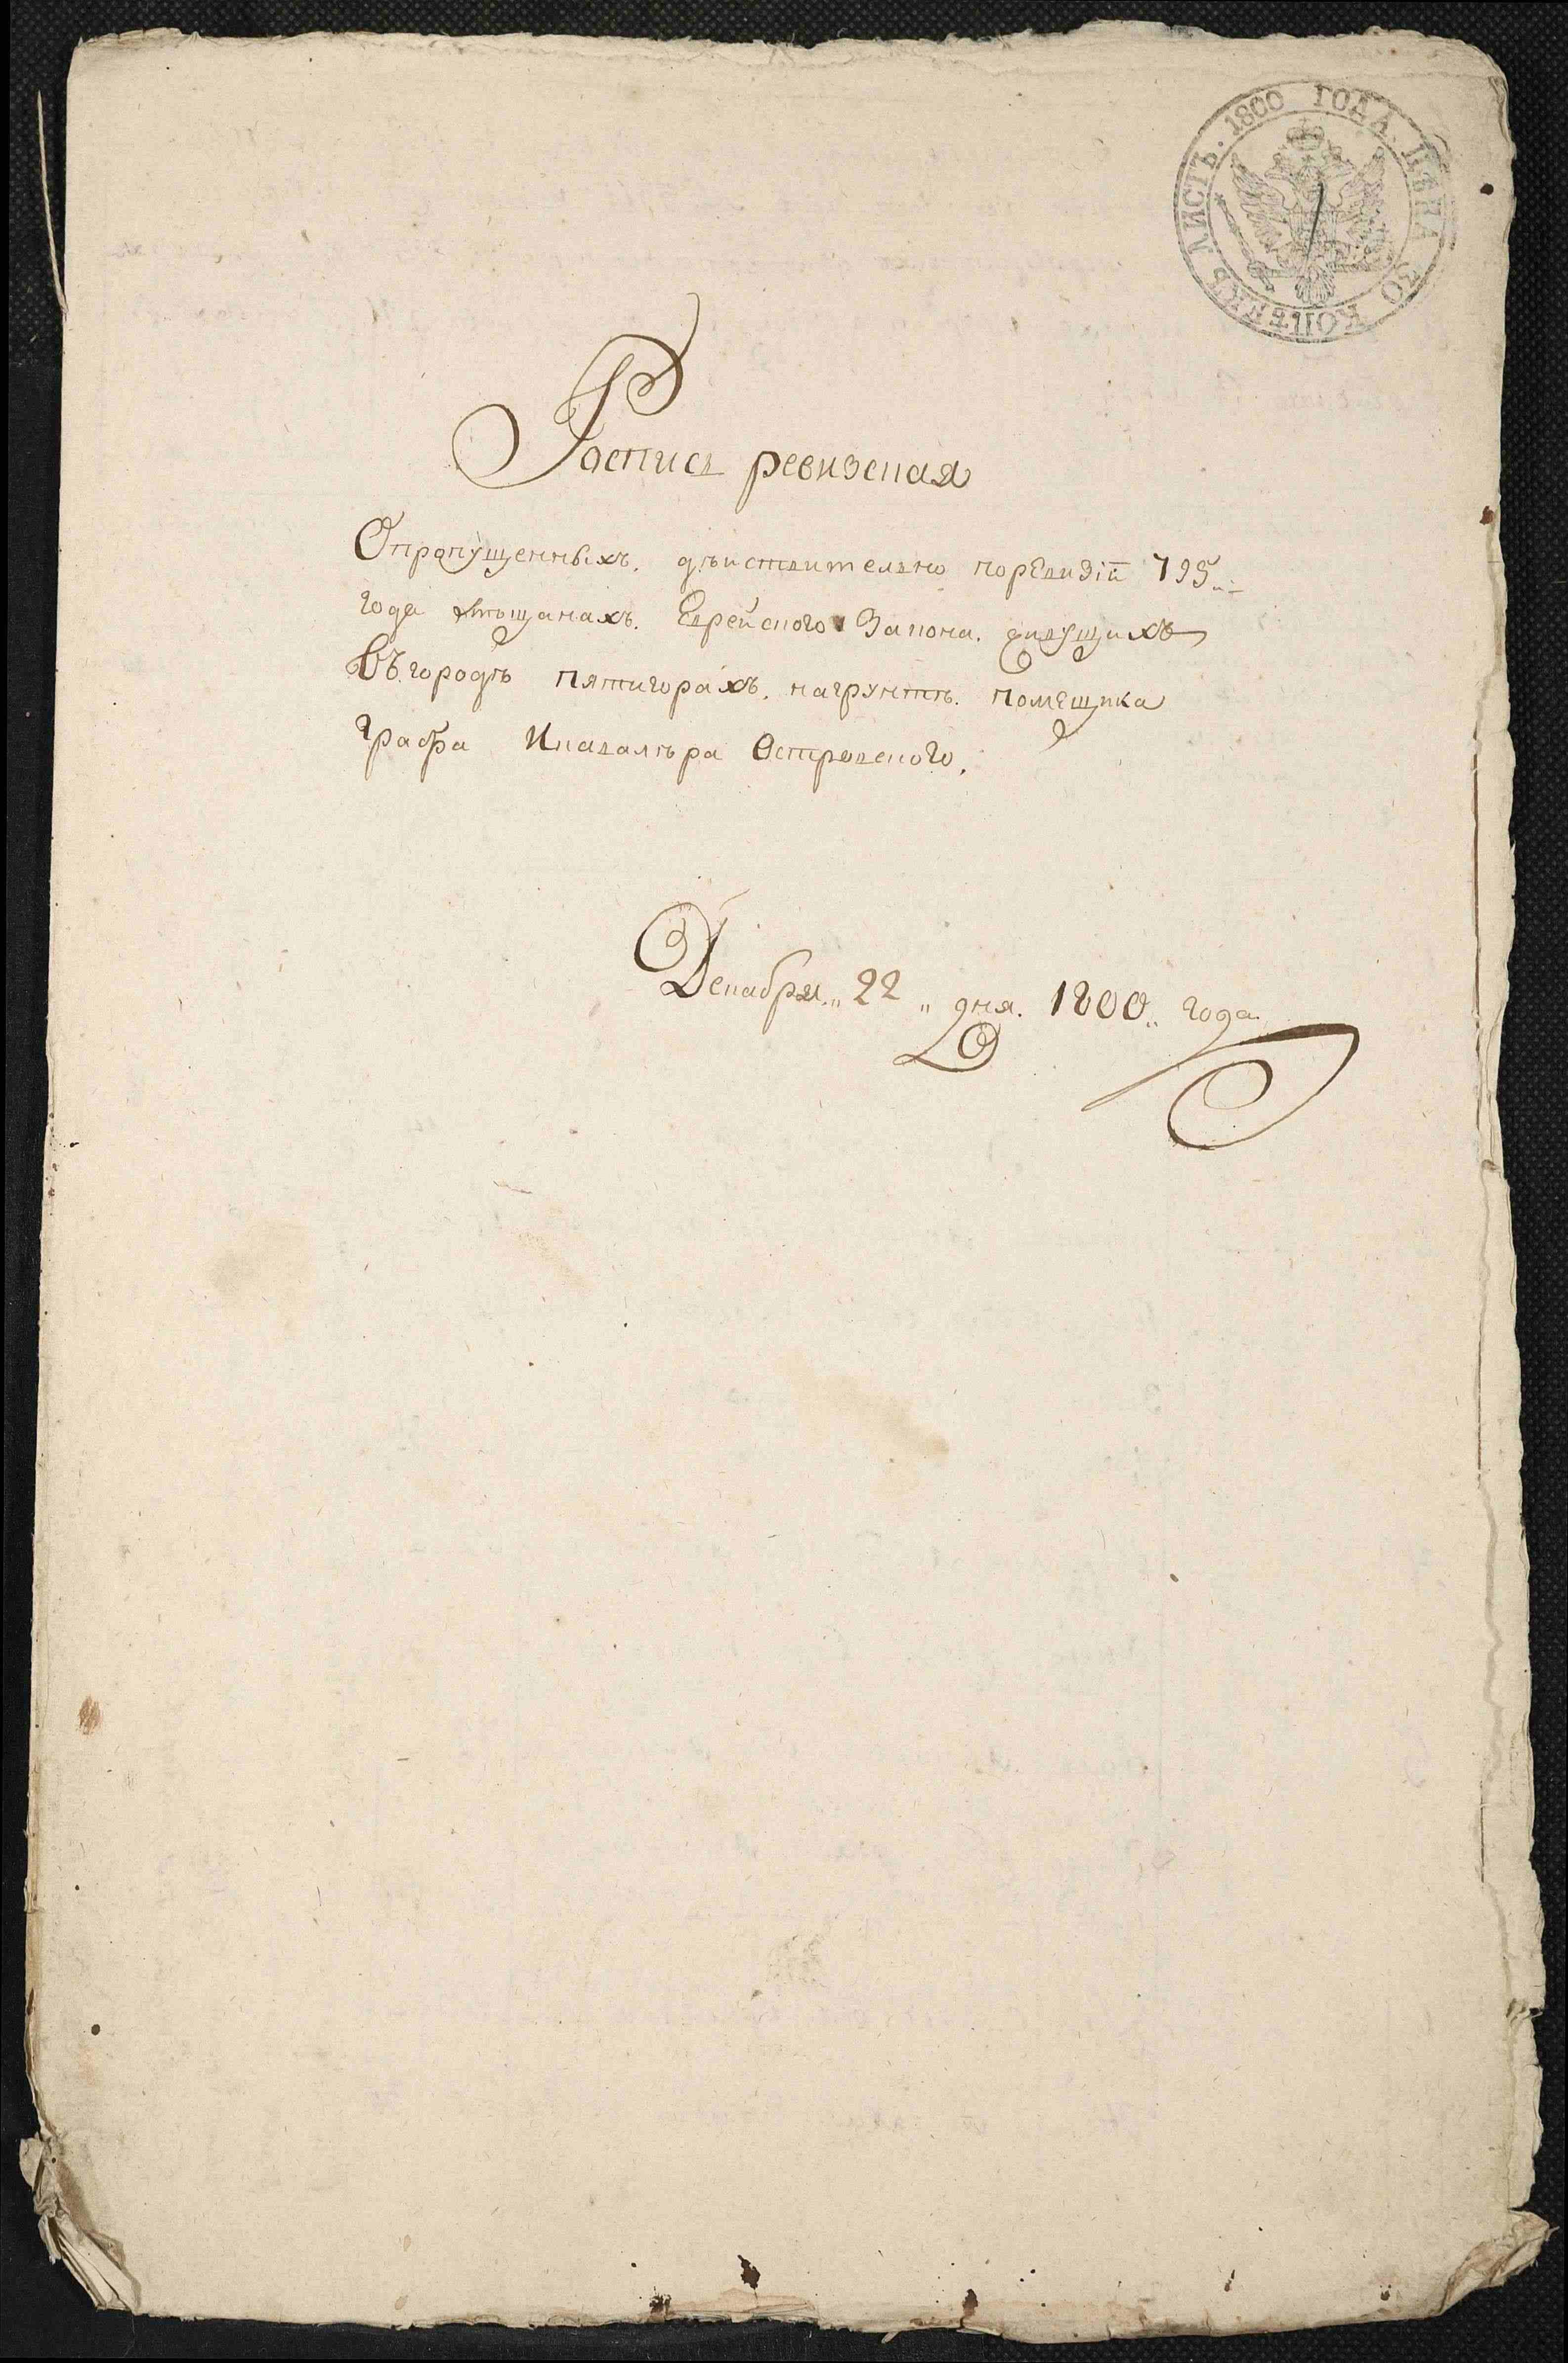 ЛИСТЪ. 1800 ГОДА. ЦѢНА 30 КОПѢЕКЪ
Роспись ревизская
Опропущенныхъ. дѣиствително поревизіи 795
года мѣщанахъ. Еврейского Закона. живущихъ
Въгородѣ пятигорахъ. нагрунтѣ. помещика
Графа Икавалѣра Островского.
Декабря „ 22 „ дня. 1800 „ года